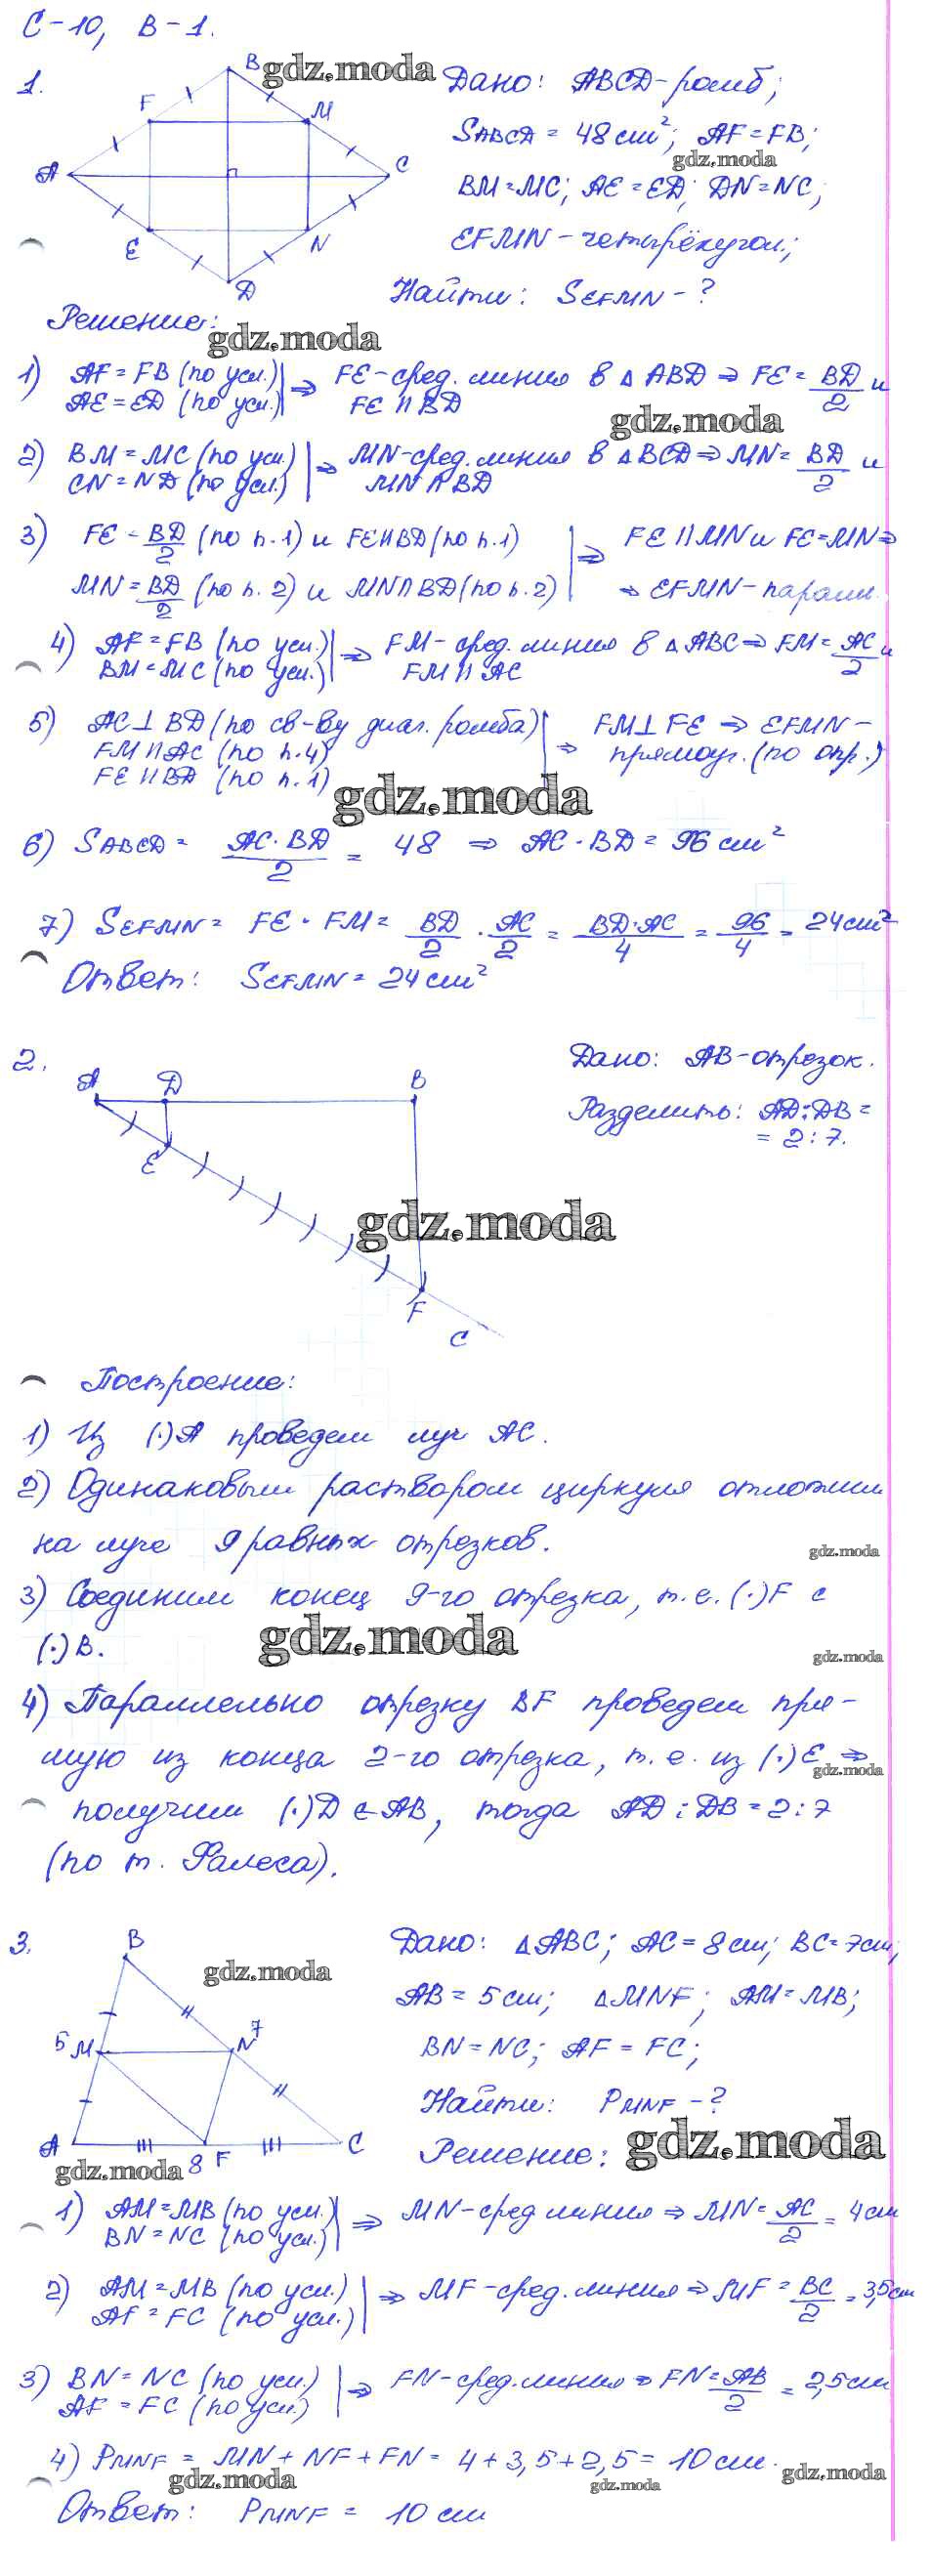 С-10, В-1.
1.
B
F
M
A
C
E
N
D
gdz.moda
Дано: ABCD-ромб;
SABCD = 48 см²; AF=FB;
gdz.moda
BM=MC; AE=ED; DN=NC;
EFMN-четырёхугол;
Найти: SEFMN-?
Решение:
gdz.moda
1) AF=FB (по усл.) | ⇒ FE-сред. линия в △ABD ⇒ FE = BD/2 и
AE=ED (по усл.) FE II BD
gdz.moda
2) BM=MC (по усл.) | ⇒ MN-сред. линия в △BCD ⇒ MN = BD/2 и
CN=ND (по усл.) MN П BD
3) FE - BD/2 (по п.1) и FEIIBD (по п.1) | ⇒ FE II MN и FE=MN ⇒
MN = BD/2 (по п.2) и MNПBD (по п.2) ⇒ EFMN-парал.
4) AF=FB (по усл.) | ⇒ FM-сред. линия в △ABC ⇒ FM = AC/2 и
BM=MC (по усл.) FM II AC
5) AC⊥BD (по св-ву диаг. ромба) | ⇒ FM⊥FE ⇒ EFMN-
FM II AC (по п.4) прямоуг. (по опр.)
FE II BD (по п.1)
gdz.moda
6) SABCD = AC·BD/2 = 48 ⇒ AC·BD = 96 см²
7) SEFMN = FE·FM = BD/2 · AC/2 = BD·AC/4 = 96/4 = 24см²
Ответ: SEFMN = 24 см²
2.
A D B
E
F
C
Дано: AB-отрезок.
Разделить: AD:DB =
= 2:7.
gdz.moda
Построение:
1) Из (·)A проведем луч AC.
2) Одинаковым раствором циркуля отложим
на луче 9 равных отрезков.
gdz.moda
3) Соединим конец 9-го отрезка, т.е. (·)F с
(·)B.
gdz.moda
gdz.moda
4) Параллельно отрезку BF проведем пря-
мую из конца 2-го отрезка, т.е. из (·)E ⇒
gdz.moda
получим (·)D ∈ AB, тогда AD:DB=2:7
(по т. Фалеса).
3.
B
5 M
N 7
A
8 F
C
gdz.moda
gdz.moda
Дано: △ABC; AC=8см; BC=7см;
AB=5см; △MNF; AM=MB;
BN=NC; AF=FC;
Найти: PMNF-?
Решение:
gdz.moda
1) AM=MB (по усл.) | ⇒ MN-сред линия ⇒ MN = AC/2 = 4см
BN=NC (по усл.)
2) AM=MB (по усл.) | ⇒ MF-сред. линия ⇒ MF = BC/2 = 3,5см
AF=FC (по усл.)
3) BN=NC (по усл.) | ⇒ FN-сред. линия ⇒ FN = AB/2 = 2,5см
AF=FC (по усл.)
4) PMNF = MN+NF+FN = 4+3,5+2,5 = 10см.
gdz.moda
gdz.moda
gdz.moda
Ответ: PMNF = 10 см